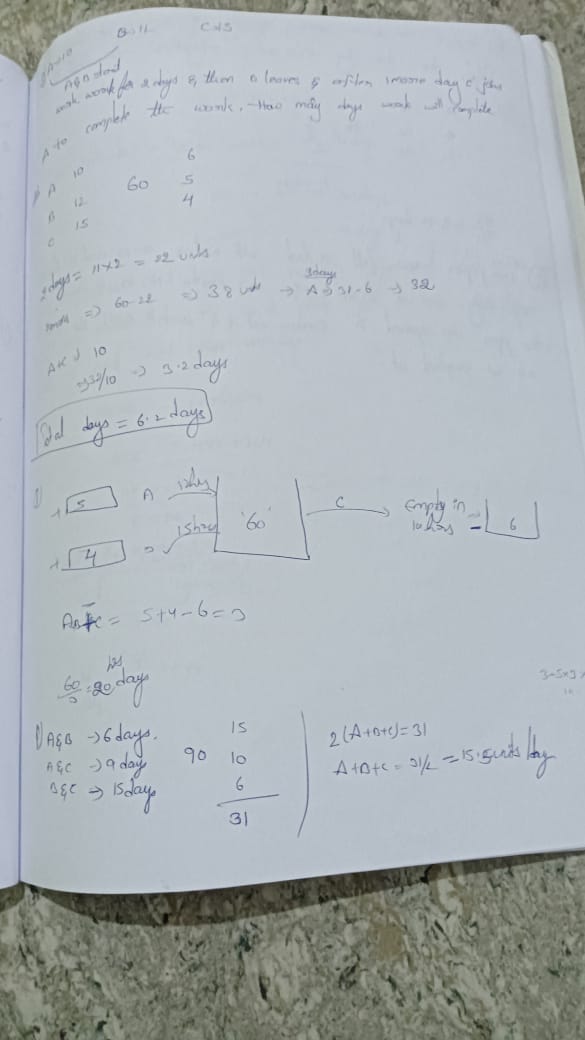 A→10 B→12 C→15
A&B start
work work for 2 days & then B leaves & after 1 more day C joins
A to complete the work. How may days work will complete
A 10 6
B 12 60 5
C 15 4
2 days = 11×2 = 22 units
=> 60-22 => 38 units → 1 days
A => 31-6 → 32
A&C → 10
=> 32/10 => 3.2 days
Total days = 6.2 days
5 A 12hrs '60' C Empty in 10 hrs = 6
4 B 15hrs
AB-C = 5+4-6=3
60/3 = 20 hrs days
A&B → 6 days. 15
A&C → 9 day 90 10
B&C → 15 days 6
31
2(A+B+C)=31
A+B+C = 31/2 = 15.5 units/day